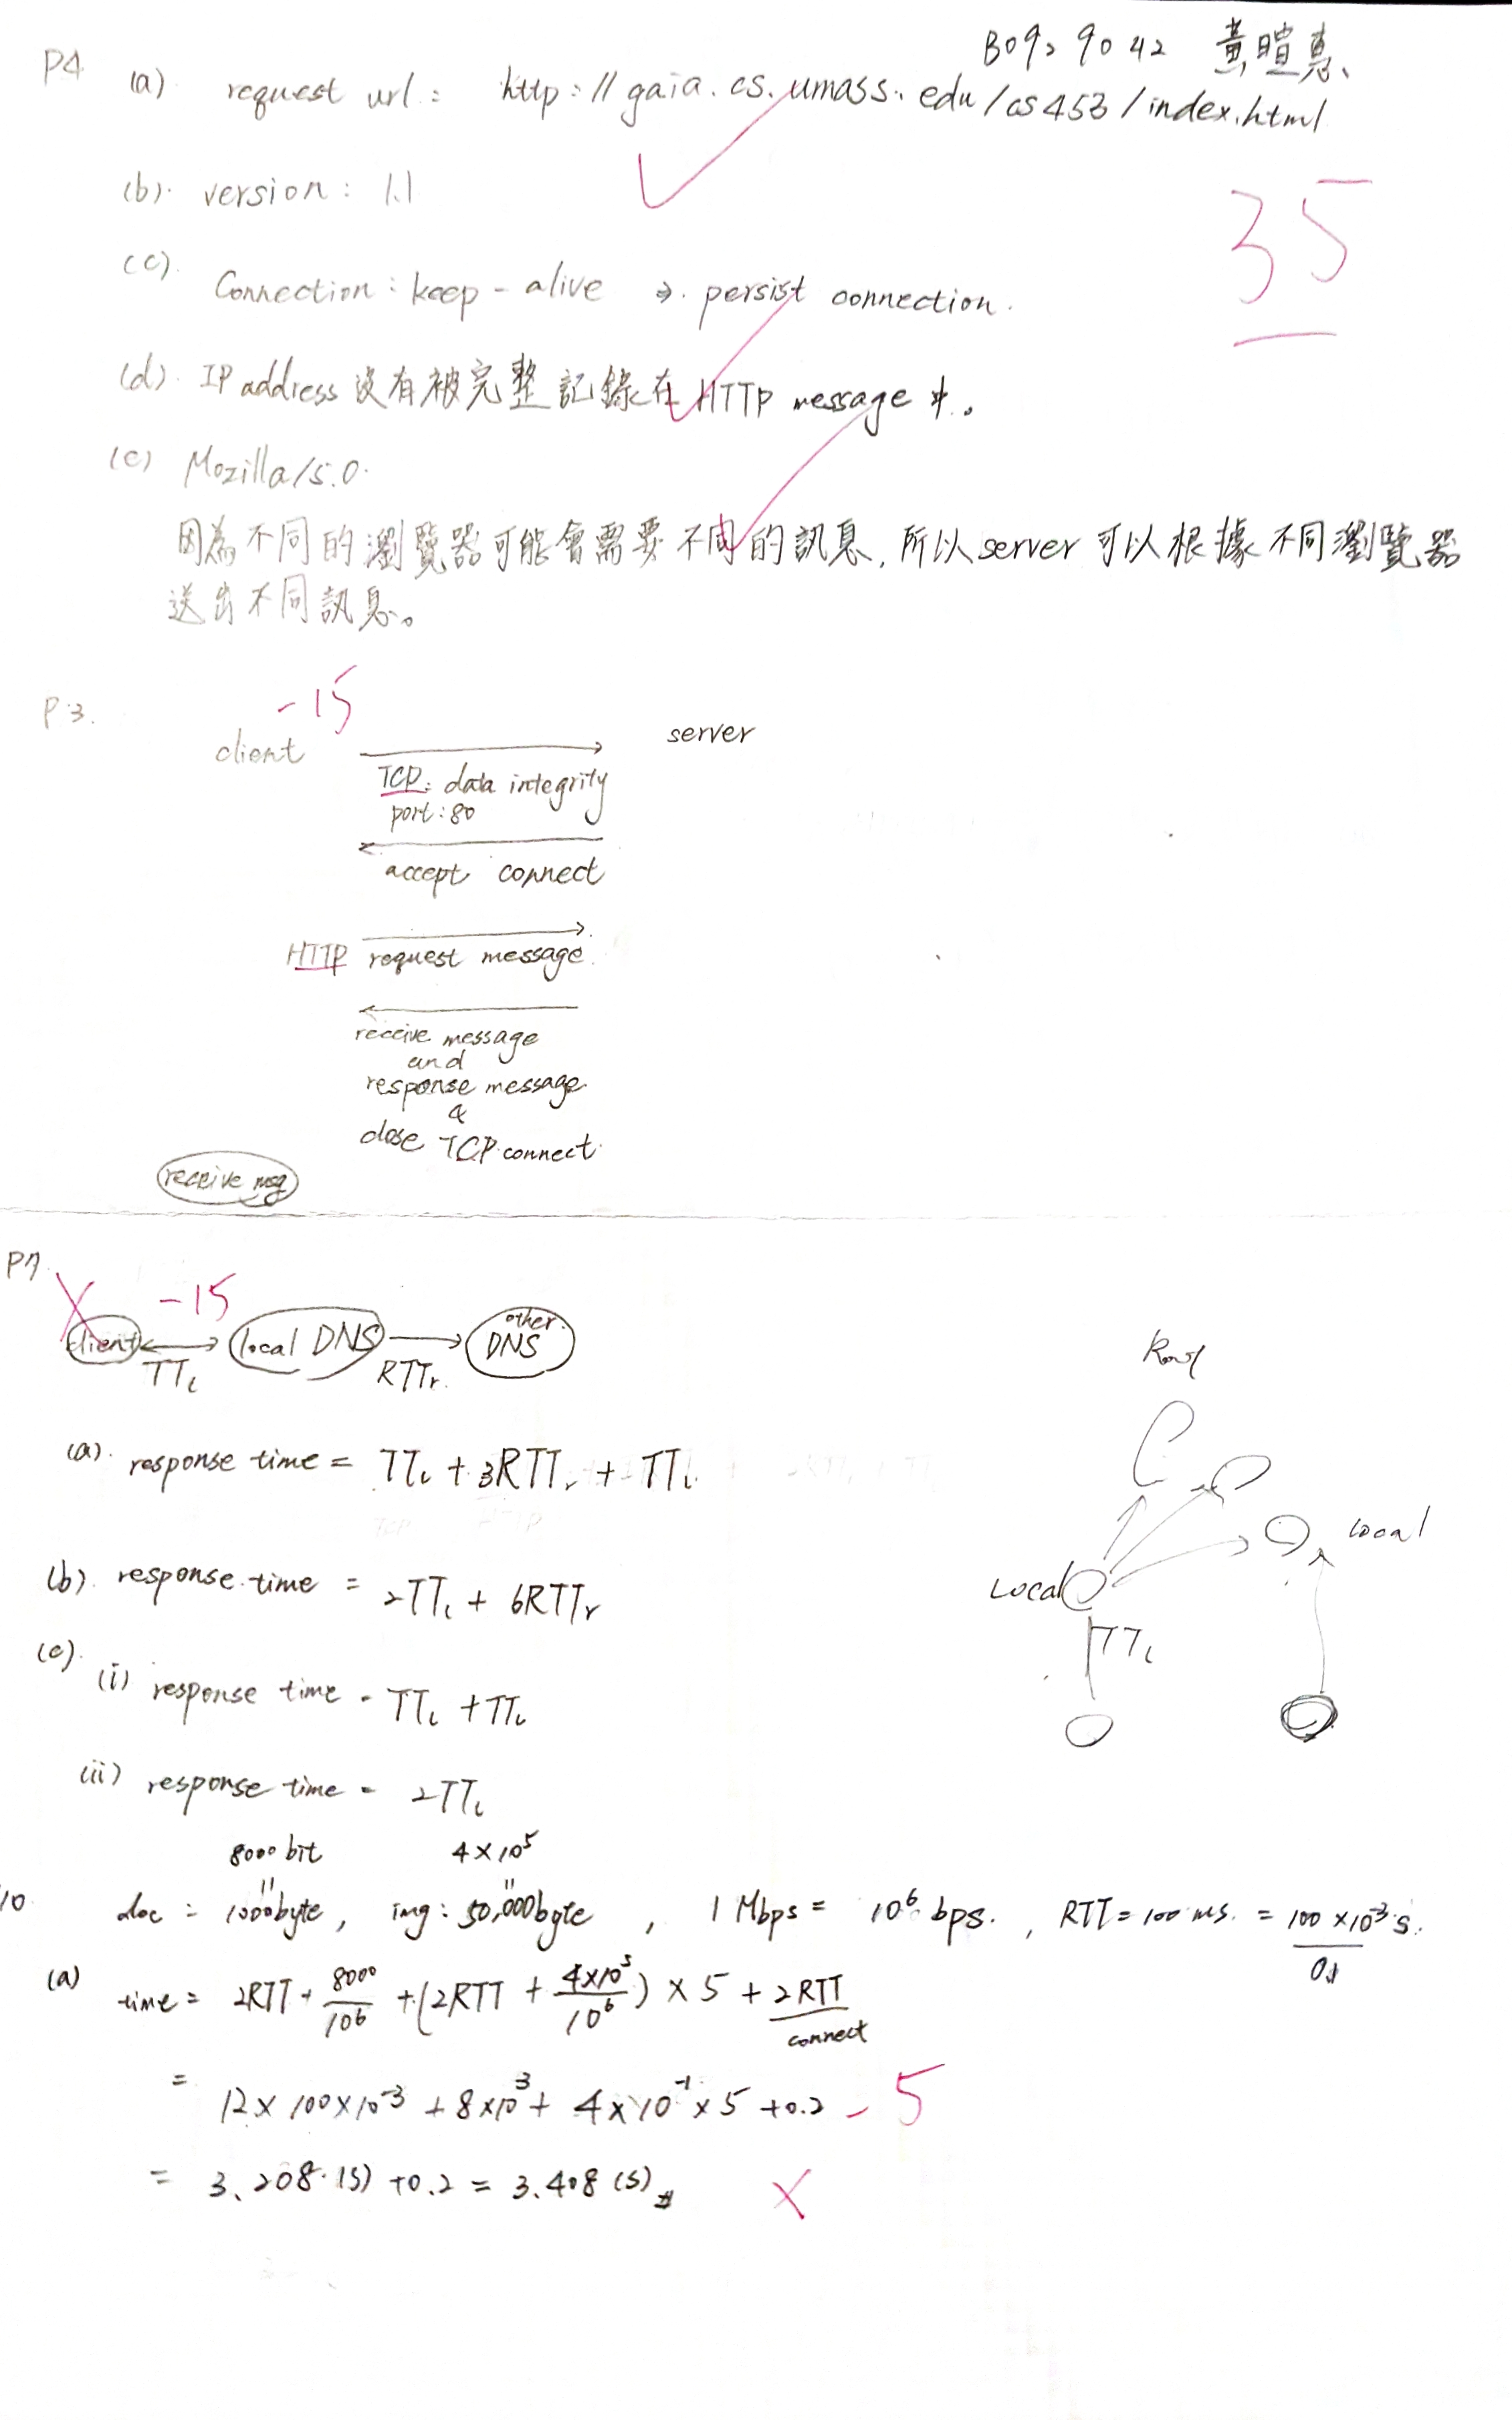 B0929042 黃暄惠
P4
(a) request url : http://gaia.cs.umass.edu/cs453/index.html
35
(b). version : 1.1
(c). Connection : keep-alive ⇒ persist connection.
(d). IP address 沒有被完整記錄在 HTTP message 中。
(e) Mozilla/5.0.
因為不同的瀏覽器可能會需要不同的訊息, 所以 server 可以根據不同瀏覽器
送出不同訊息。
P3.
-15
client server
TCP: data integrity
port: 80
accept connect
HTTP request message.
receive message
and
response message
&
close TCP connect.
receive msg
P7
-15
client local DNS other DNS
TTL RTTr.
(a). response time = TTL + 3RTTr + TTL
(b). response time = 2TTL + 6RTTr
(c).
(i) response time = TTL + TTL
(ii) response time = 2TTL
Root
Local
Local
TTL
8000 bit 4×10⁵
10. doc : 1000byte, img : 50,000byte, 1 Mbps = 10⁶ bps., RTT = 100 ms. = 100×10⁻³ s.
0.1
(a) time = 2RTT + 8000/10⁶ + (2RTT + 4×10⁵/10⁶) × 5 + 2RTT
connect
= 12×100×10⁻³ + 8×10³ + 4×10⁻¹×5 + 0.2 -5
= 3.208 (s) + 0.2 = 3.408 (s) #